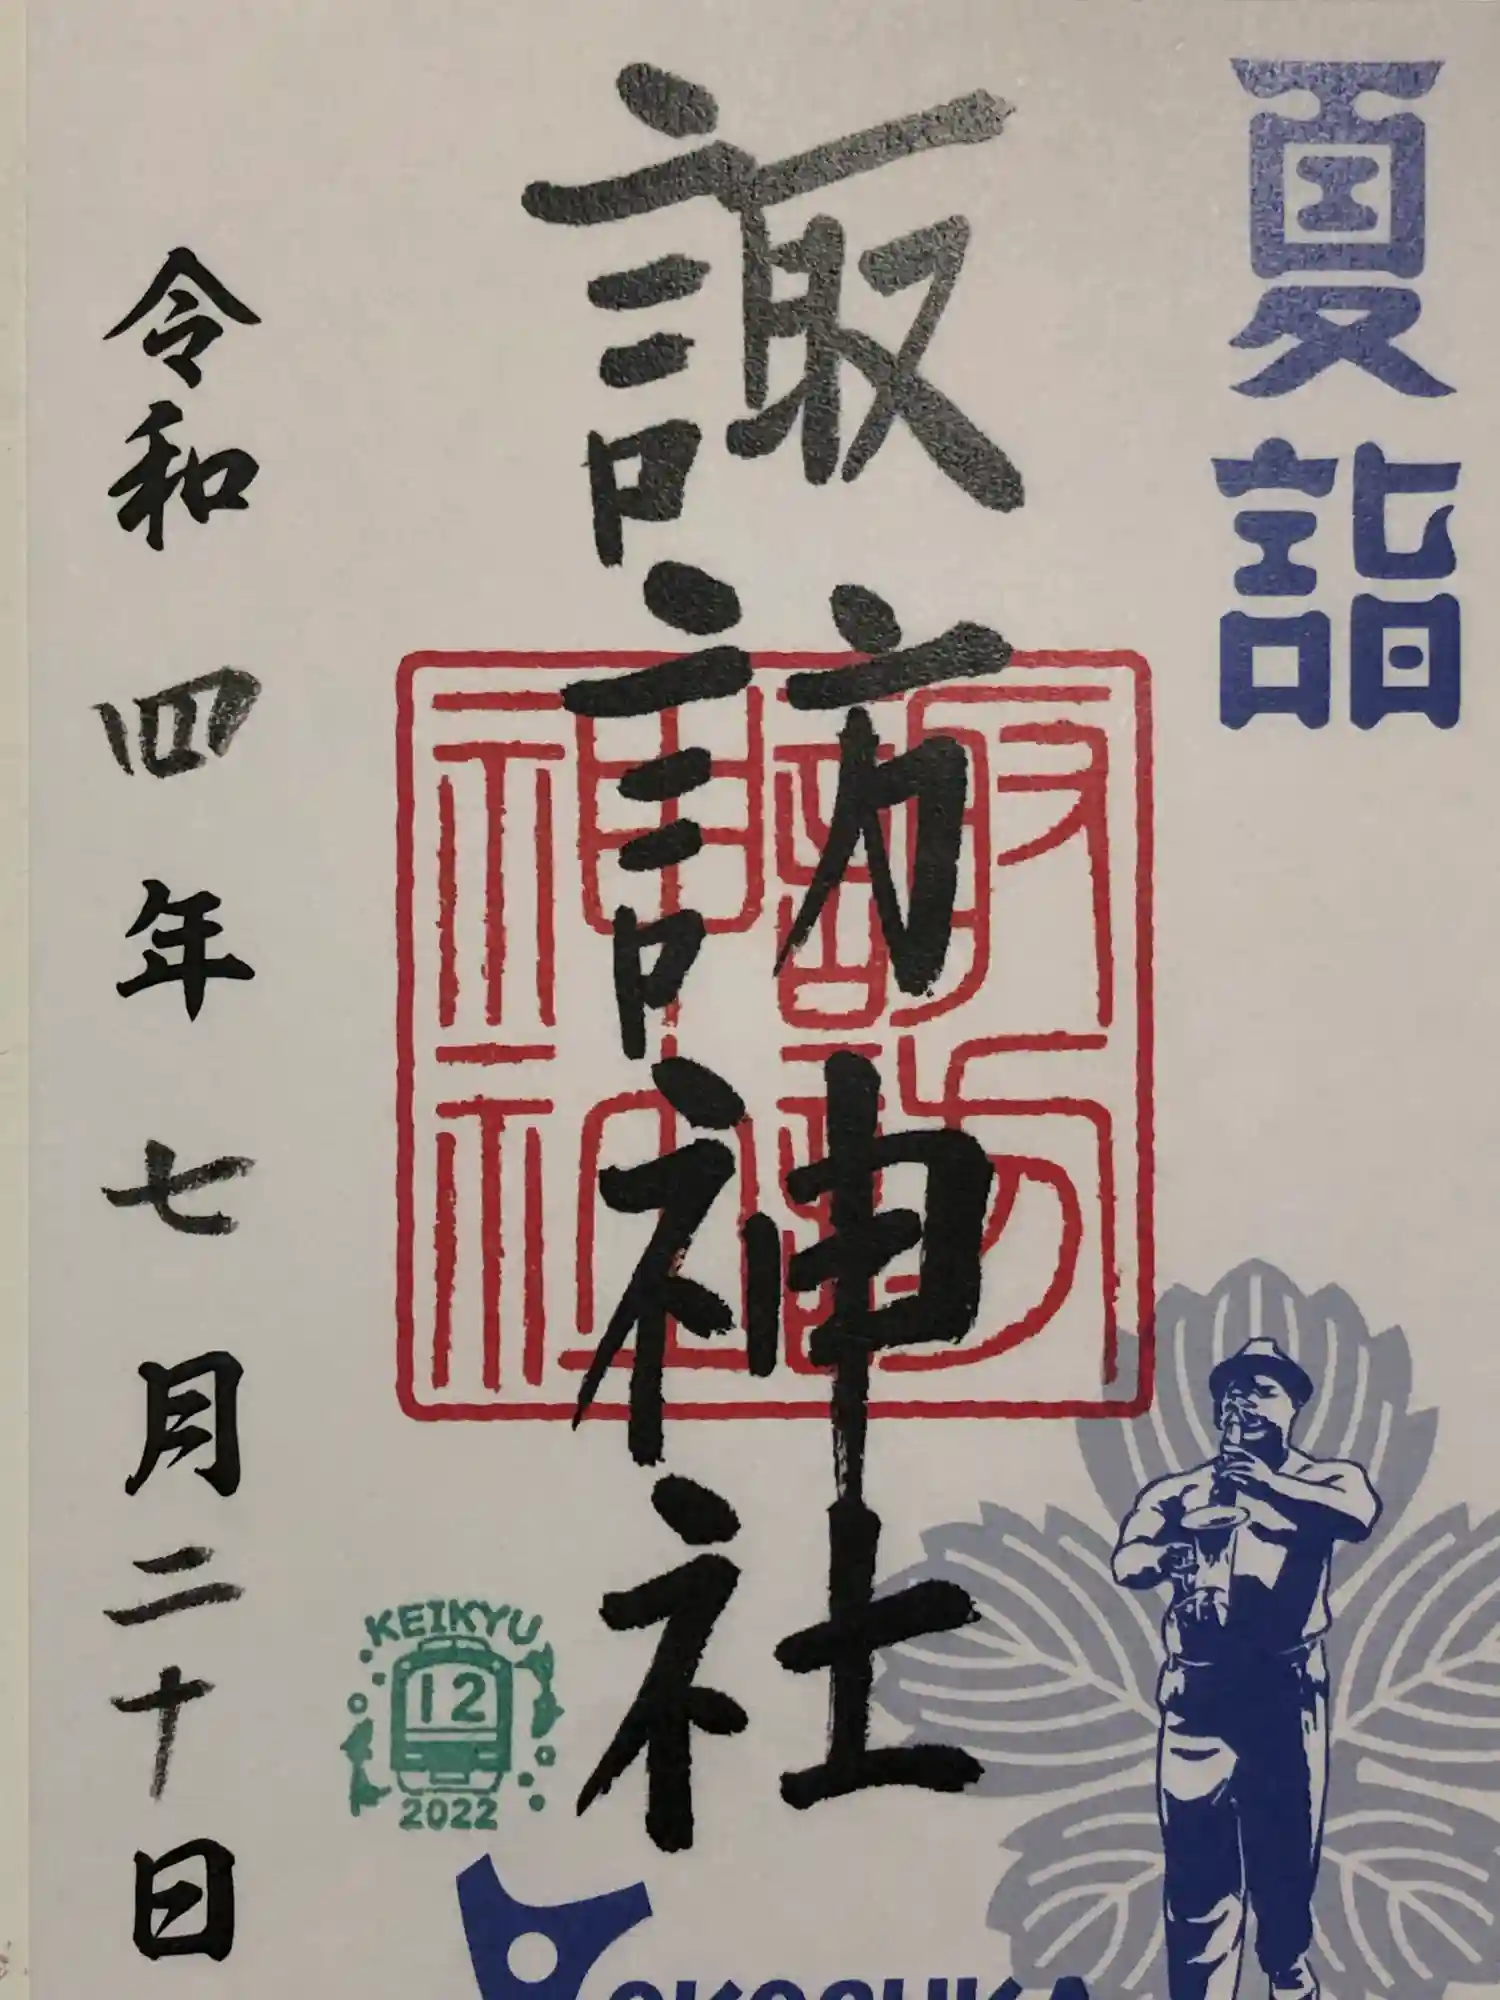 夏詣
諏訪神社
諏訪神社
令和四年七月二十日
KEIKYU
12
2022
YOKOSUKA